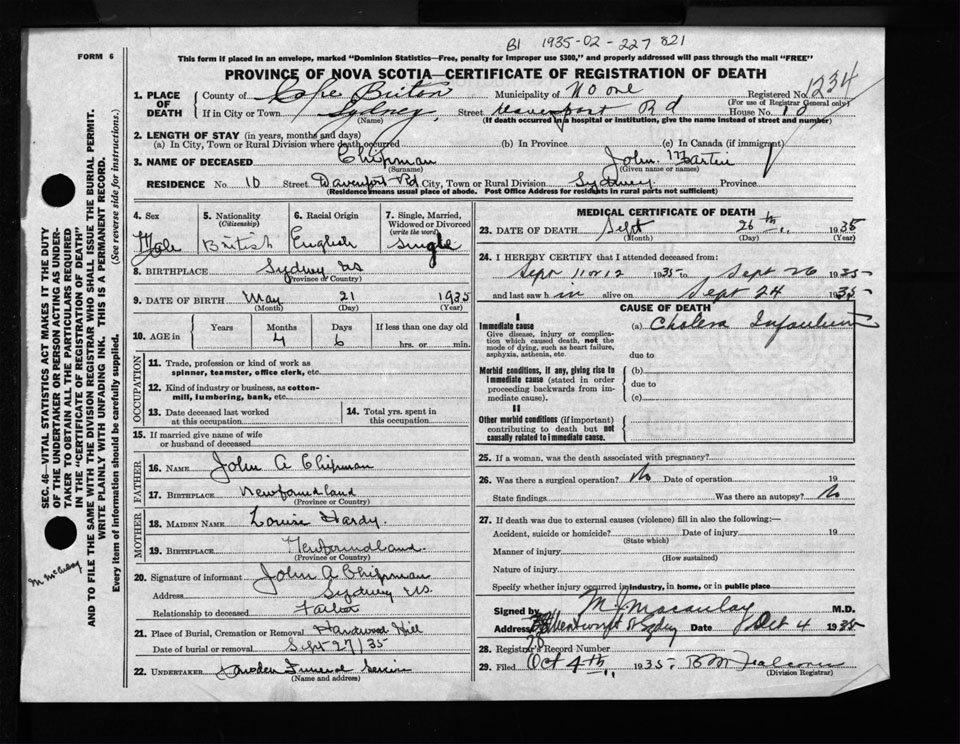 B1 1935-02-227821
FORM 6
This form if placed in an envelope, marked "Dominion Statistics—Free, penalty for improper use $300," and properly addressed will pass through the mail "FREE"
PROVINCE OF NOVA SCOTIA—CERTIFICATE OF REGISTRATION OF DEATH
1234
1. PLACE OF DEATH County of Cape Breton Municipality of No one Registered No.
(For use of Registrar General only)
If in City or Town Sydney Street Davenport Rd House No. 10
(Name) (If death occurred in a hospital or institution, give the name instead of street and number)
2. LENGTH OF STAY (in years, months and days)
(a) In City, Town or Rural Division where death occurred (b) In Province (c) In Canada (if immigrant)
3. NAME OF DECEASED Chipman John Martin
(Surname) (Given name or names)
RESIDENCE No. 10 Street Davenport Rd City, Town or Rural Division Sydney Province
(Residence means usual place of abode. Post Office Address for residents in rural parts not sufficient)
4. Sex Male
5. Nationality (Citizenship) British
6. Racial Origin English
7. Single, Married, Widowed or Divorced (write the word) Single
8. BIRTHPLACE Sydney NS
(Province or Country)
9. DATE OF BIRTH May 21 1935
(Month) (Day) (Year)
10. AGE in Years Months Days If less than one day old
4 6 hrs. or min.
OCCUPATION
11. Trade, profession or kind of work as spinner, teamster, office clerk, etc.
12. Kind of industry or business, as cotton-mill, lumbering, bank, etc.
13. Date deceased last worked at this occupation
14. Total yrs. spent in this occupation
15. If married give name of wife or husband of deceased
FATHER
16. NAME John A Chipman
17. BIRTHPLACE Newfoundland
(Province or Country)
MOTHER
18. MAIDEN NAME Louise Hardy
19. BIRTHPLACE Newfoundland
(Province or Country)
20. Signature of informant John A Chipman
Address Sydney NS.
Relationship to deceased Father
21. Place of Burial, Cremation or Removal Hardwood Hill
Date of burial or removal Sept 27/35
22. UNDERTAKER Funeral Service
(Name and address)
MEDICAL CERTIFICATE OF DEATH
23. DATE OF DEATH Sept 26th 1935
(Month) (Day) (Year)
24. I HEREBY CERTIFY that I attended deceased from:
Sept 11 or 12 1935 to Sept 26 1935
and last saw him alive on Sept 24 1935
CAUSE OF DEATH
I
Immediate cause (a) Cholera Infantum
Give disease, injury or complication which caused death, not the mode of dying, such as heart failure, asphyxia, asthenia, etc.
due to
Morbid conditions, if any, giving rise to immediate cause (stated in order proceeding backwards from immediate cause).
(b)
due to
(c)
II
Other morbid conditions (if important) contributing to death but not causally related to immediate cause.
25. If a woman, was the death associated with pregnancy?
26. Was there a surgical operation? No Date of operation 19
State findings Was there an autopsy? No
27. If death was due to external causes (violence) fill in also the following:—
Accident, suicide or homicide? Date of injury 19
(State which)
Manner of injury
(How sustained)
Nature of injury
Specify whether injury occurred in industry, in home, or in public place
Signed by M J Macaulay M.D.
Address St Sydney Date Oct 4 1935
28. Registrar's Record Number
29. Filed Oct 4th 1935
(Division Registrar)
SEC. 46.—VITAL STATISTICS ACT MAKES IT THE DUTY OF THE UNDERTAKER OR PERSON ACTING AS UNDERTAKER TO OBTAIN ALL THE PARTICULARS REQUIRED IN THE "CERTIFICATE OF REGISTRATION OF DEATH" AND TO FILE THE SAME WITH THE DIVISION REGISTRAR WHO SHALL ISSUE THE BURIAL PERMIT.
WRITE PLAINLY WITH UNFADING INK. THIS IS A PERMANENT RECORD.
Every item of information should be carefully supplied. (See reverse side for instructions.)